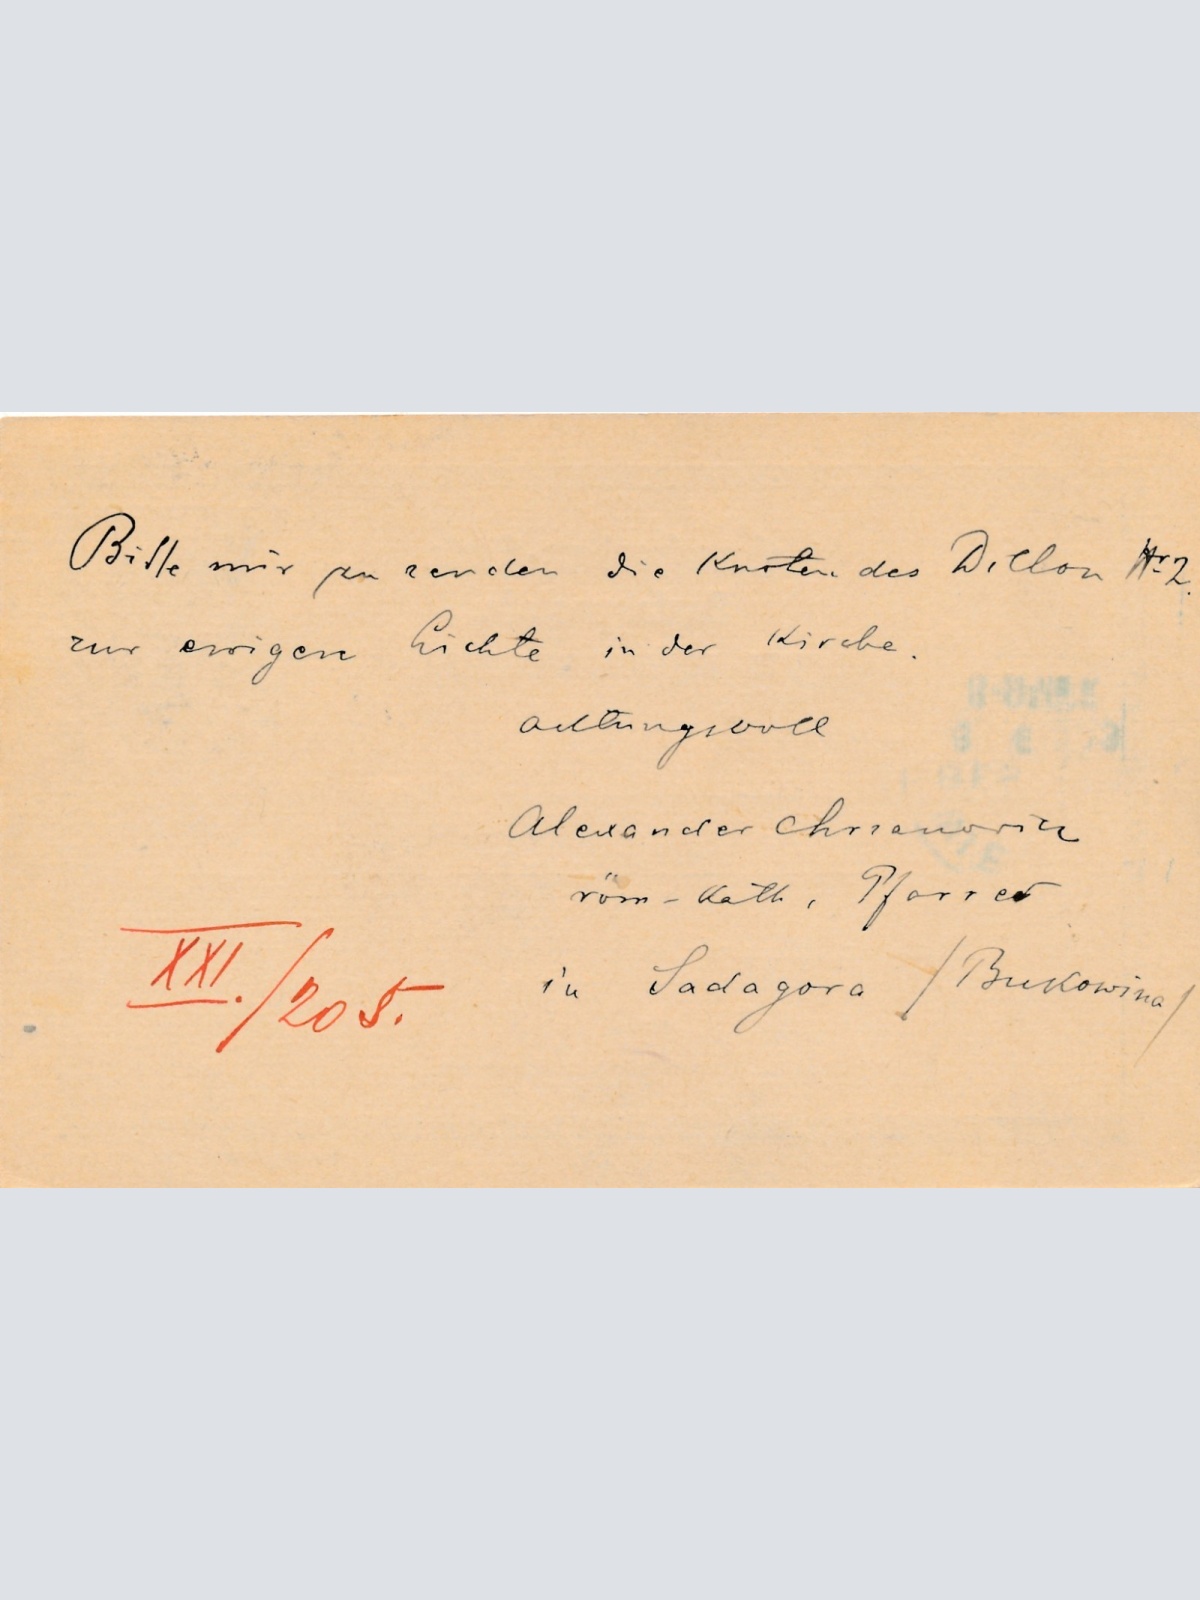 Bitte mir zu senden die Knoten des Dillon Nr 2.
zur ewigen Lichte in der Kirche.
achtungsvoll
Alexander
röm-kath, Pfarrer
in Sadagora /Bukowina/
XXI./205.